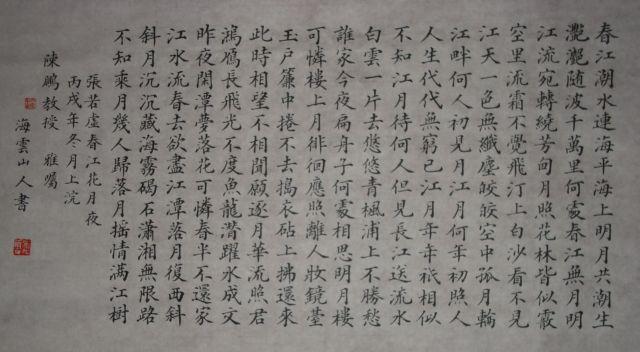 春江潮水連海平海上明月共潮生
灔灔随波千萬里何處春江無月明
江流宛轉繞芳甸月照花林皆似霰
空里流霜不覺飛汀上白沙看不見
江天一色無纖塵皎皎空中孤月輪
江畔何人初見月江月何年初照人
人生代代無窮已江月年年祇相似
不知江月待何人但見長江送流水
白雲一片去悠悠青楓浦上不勝愁
誰家今夜扁舟子何處相思明月樓
可憐樓上月徘徊應照離人妝鏡臺
玉戶簾中捲不去搗衣砧上拂還來
此時相望不相聞願逐月華流照君
鴻鴈長飛光不度魚龍潛躍水成文
昨夜閑潭夢落花可憐春半不還家
江水流春去欲盡江潭落月復西斜
斜月沉沉藏海霧碣石瀟湘無限路
不知乘月幾人歸落月搖情滿江樹
張若虛春江花月夜
丙戌年冬月上浣
陳鵬教授 雅囑
海雲山人書